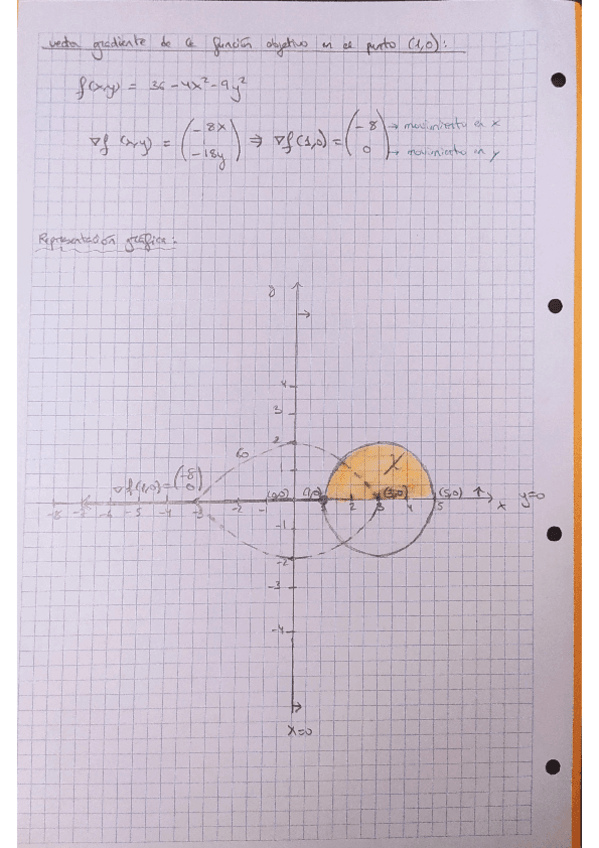 vector gradiente de la función objetivo en el punto (1,0):
f(x,y) = 36 - 4x² - 9y²
∇f (x,y) = (-8x -18y) ⇒ ∇f(1,0) = (-8 0) → movimiento en x → movimiento en y
Representación gráfica:
y
4
3
2
C0
X
∇f(1,0) = (-8 0)
(0,0) (1,0) (3,0) (5,0) y=0
-8 -7 -6 -5 -4 -3 -2 -1 1 2 3 4 5 x
-1
-2
-3
-4
x=0